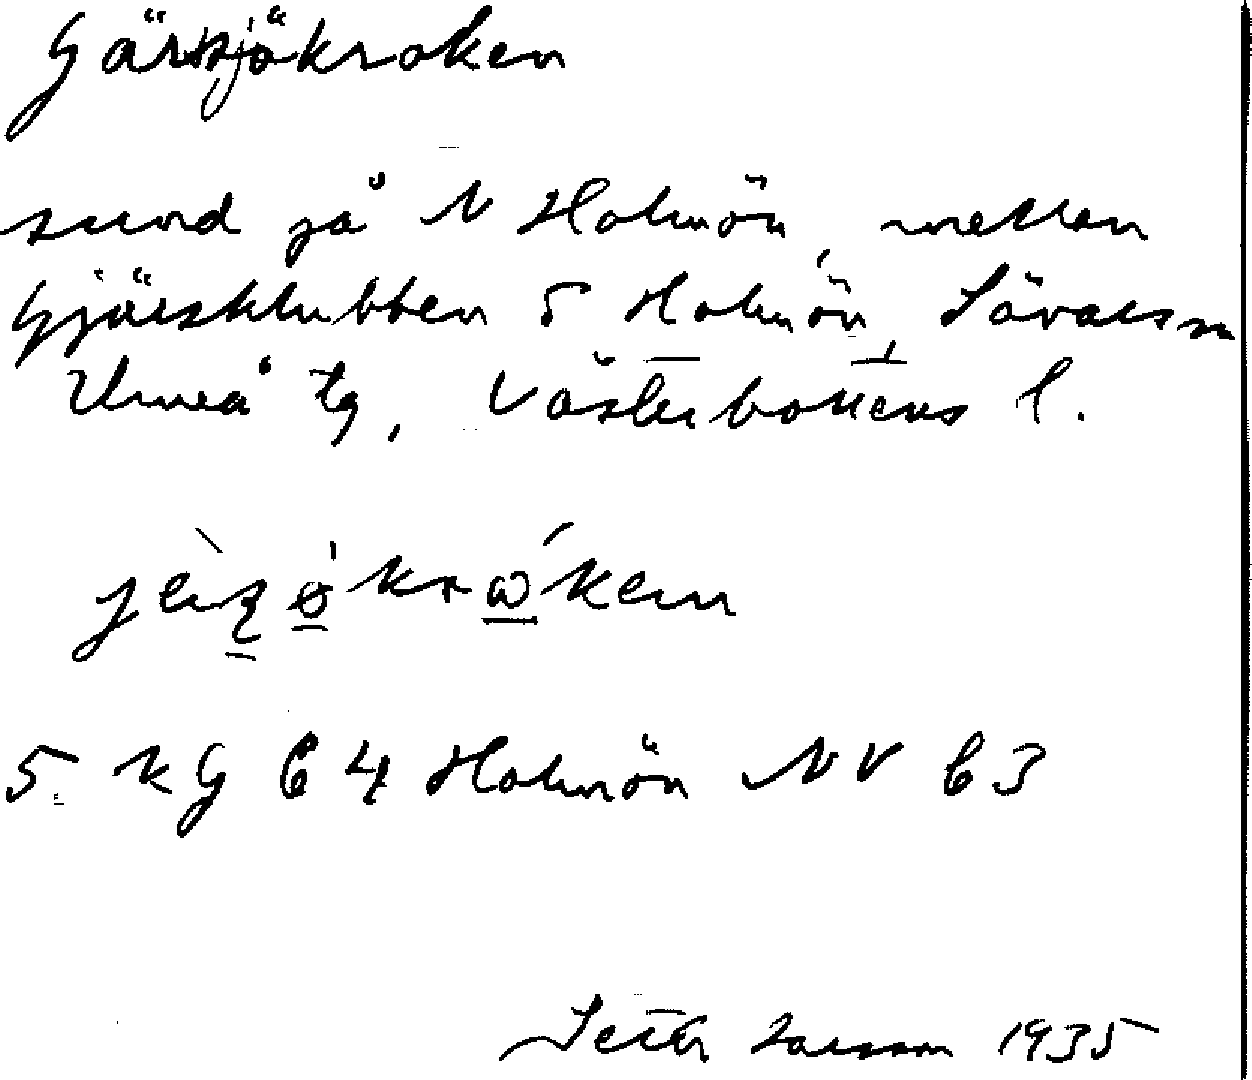 Gärsjökroken
sund på N Holmön, mellan
Gjärsklubben o Holmön, Sävars sn
Umeå tg, Västerbottens l.
5 KG 64 Holmön NV 63
Seth Larsson 1935